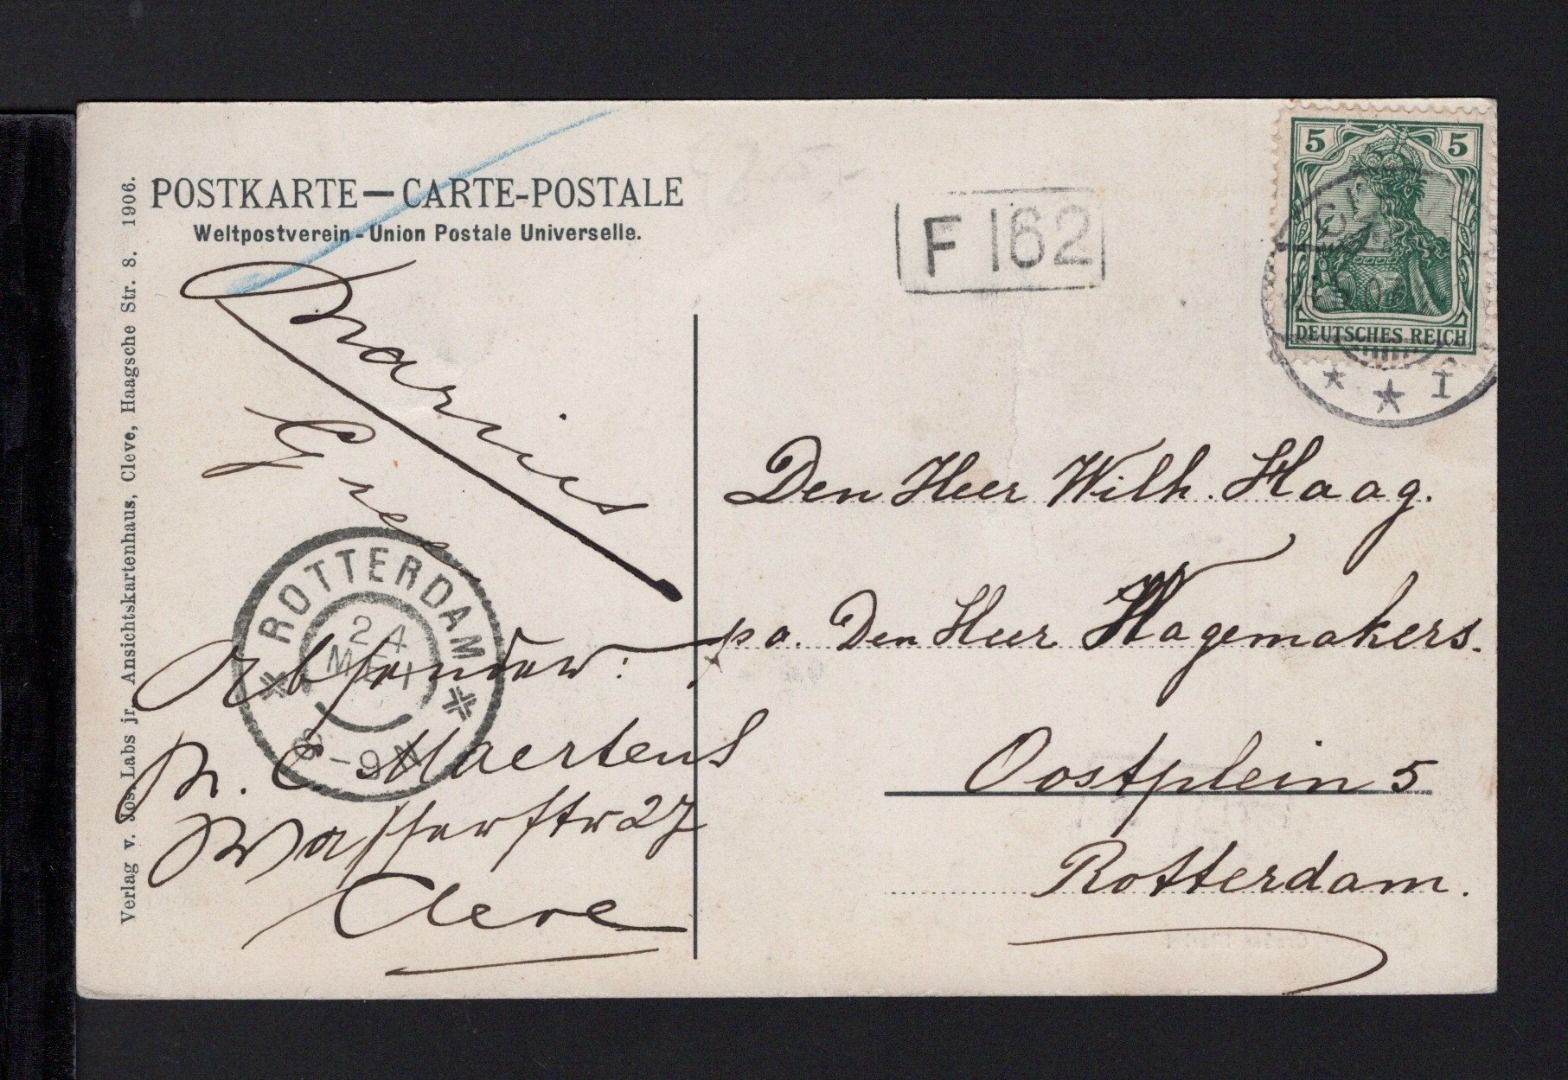 POSTKARTE — CARTE-POSTALE
Weltpostverein - Union Postale Universelle.
F 162
5 5
DEUTSCHES REICH
* * I
Verlag v. Jos. Labs jr. Ansichtskartenhaus, Cleve, Haagsche Str. 8. 1906.
Marius
ROTTERDAM
24
8-9
Absender:
M. Maertens
Wasserstr 27
Cleve
Den Heer Wilh. Haag.
pa. Den Heer Hagemakers.
Oostplein 5
Rotterdam.